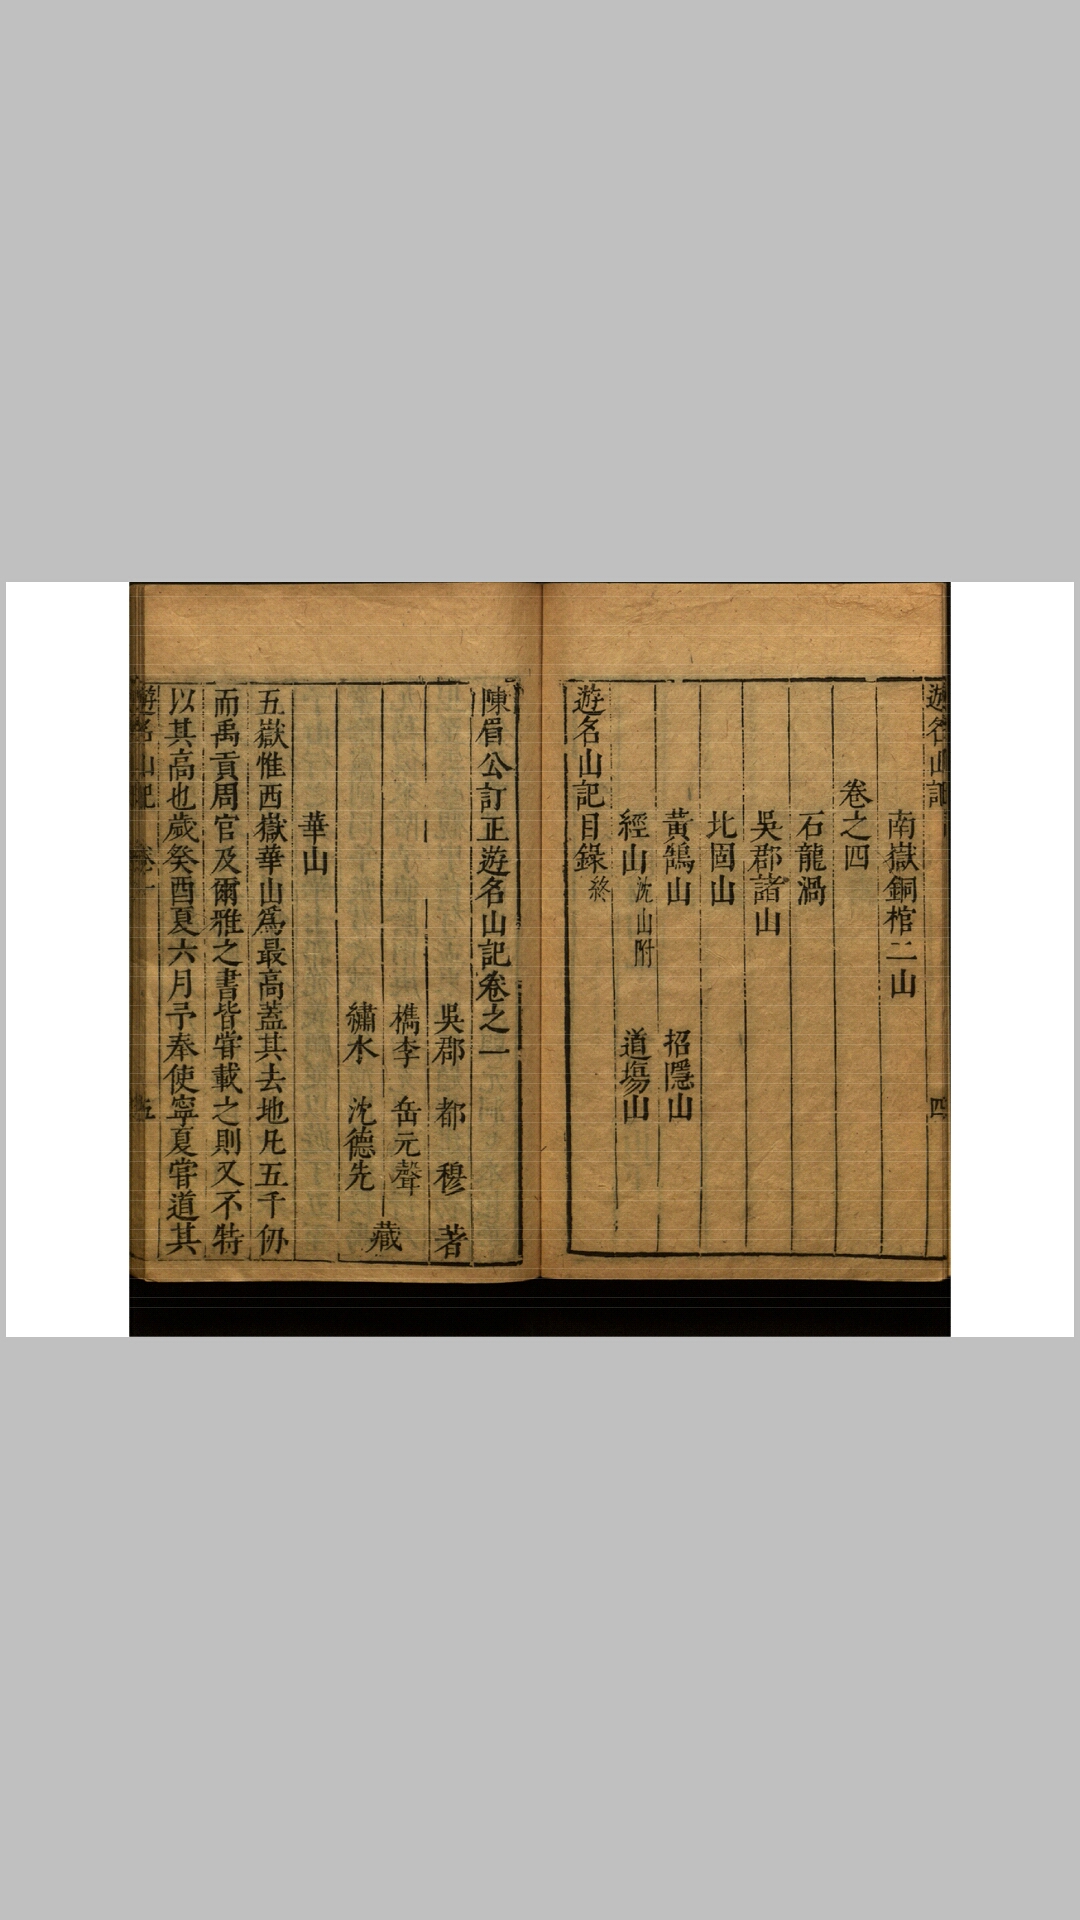 遊名山記
四
南嶽銅棺二山
卷之四
石龍渦
吳郡諸山
北固山
黃鵠山 招隱山
經山 沈山附 道塲山
遊名山記目錄 終
陳眉公訂正遊名山記卷之一
吳郡 都穆 著
檇李 岳元聲
繡水 沈德先
藏
華山
五嶽惟西嶽華山爲最高蓋其去地凡五千仞
而禹貢周官及爾雅之書皆甞載之則又不特
以其高也歲癸酉夏六月予奉使寧夏甞道其
遊名山記 卷一
五